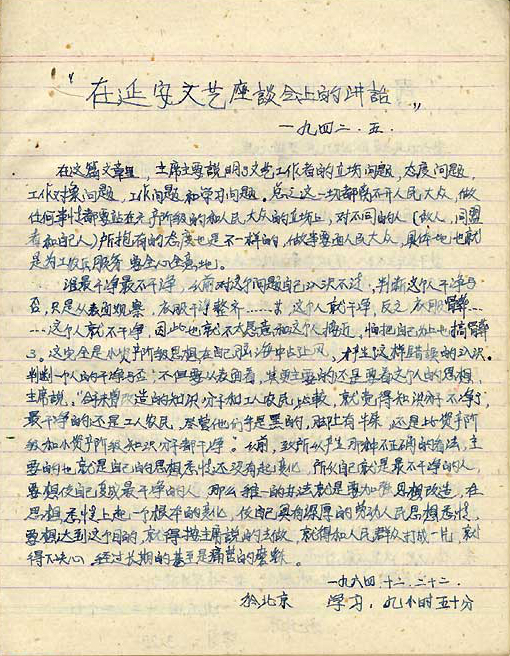 “在延安文艺座談会上的讲話”
一九四二.五.
在这篇文章里,主席主要説明了文艺工作者的立场问题,态度问题,
工作对象问题,工作问题和学习问题。总之这一切都离不开人民大众,做
任何事情都要站在无产阶级的和人民大众的立场上,对不同的人(敌人,同盟
者和自己人)所抱有的态度也是不一样的,做事要面向人民大众,具体地也就
是为工农兵服务,要全心全意地。
谁最干净最不干净,从前对这个问题自己认识不过,判断这个人干净与
否,只是从表面观察,衣服干净整齐……,这个人就干净,反之,衣服髒……
……这个人就不干净,因此也就不大愿意和这个人接近,怕把自己身上也搞髒
了,这完全是小资产阶级思想在自己脑海中占上风,才产生这样错误的认识。
判断一个人的干净与否,不但要从表面看,其更主要的还是要看这个人的思想,
主席説,“拿未曾改造的知识分子和工人农民比較,就觉得知识分子不干净了,
最干净的还是工人农民,尽管他们手是黑的,脚上有牛屎,还是比资产阶
级和小资产阶级知识分子都干净”。从前,我所以产生那种不正确的看法,主
要的也就是自己的思想感情还没有起变化,所以自己就是最不干净的人,
要想使自己变成最干净的人,那么唯一的办法就是要加强思想改造,在
思想感情上起一个根本的变化,使自己具有深厚的劳动人民思想感情,
要想达到这个目的,就得按主席説的去做,就得和人民群众打成一片,就
得下决心,经过长期的甚至是痛苦的磨练。
一九六四.十二.二十二.
於北京 学习,九小时五十分